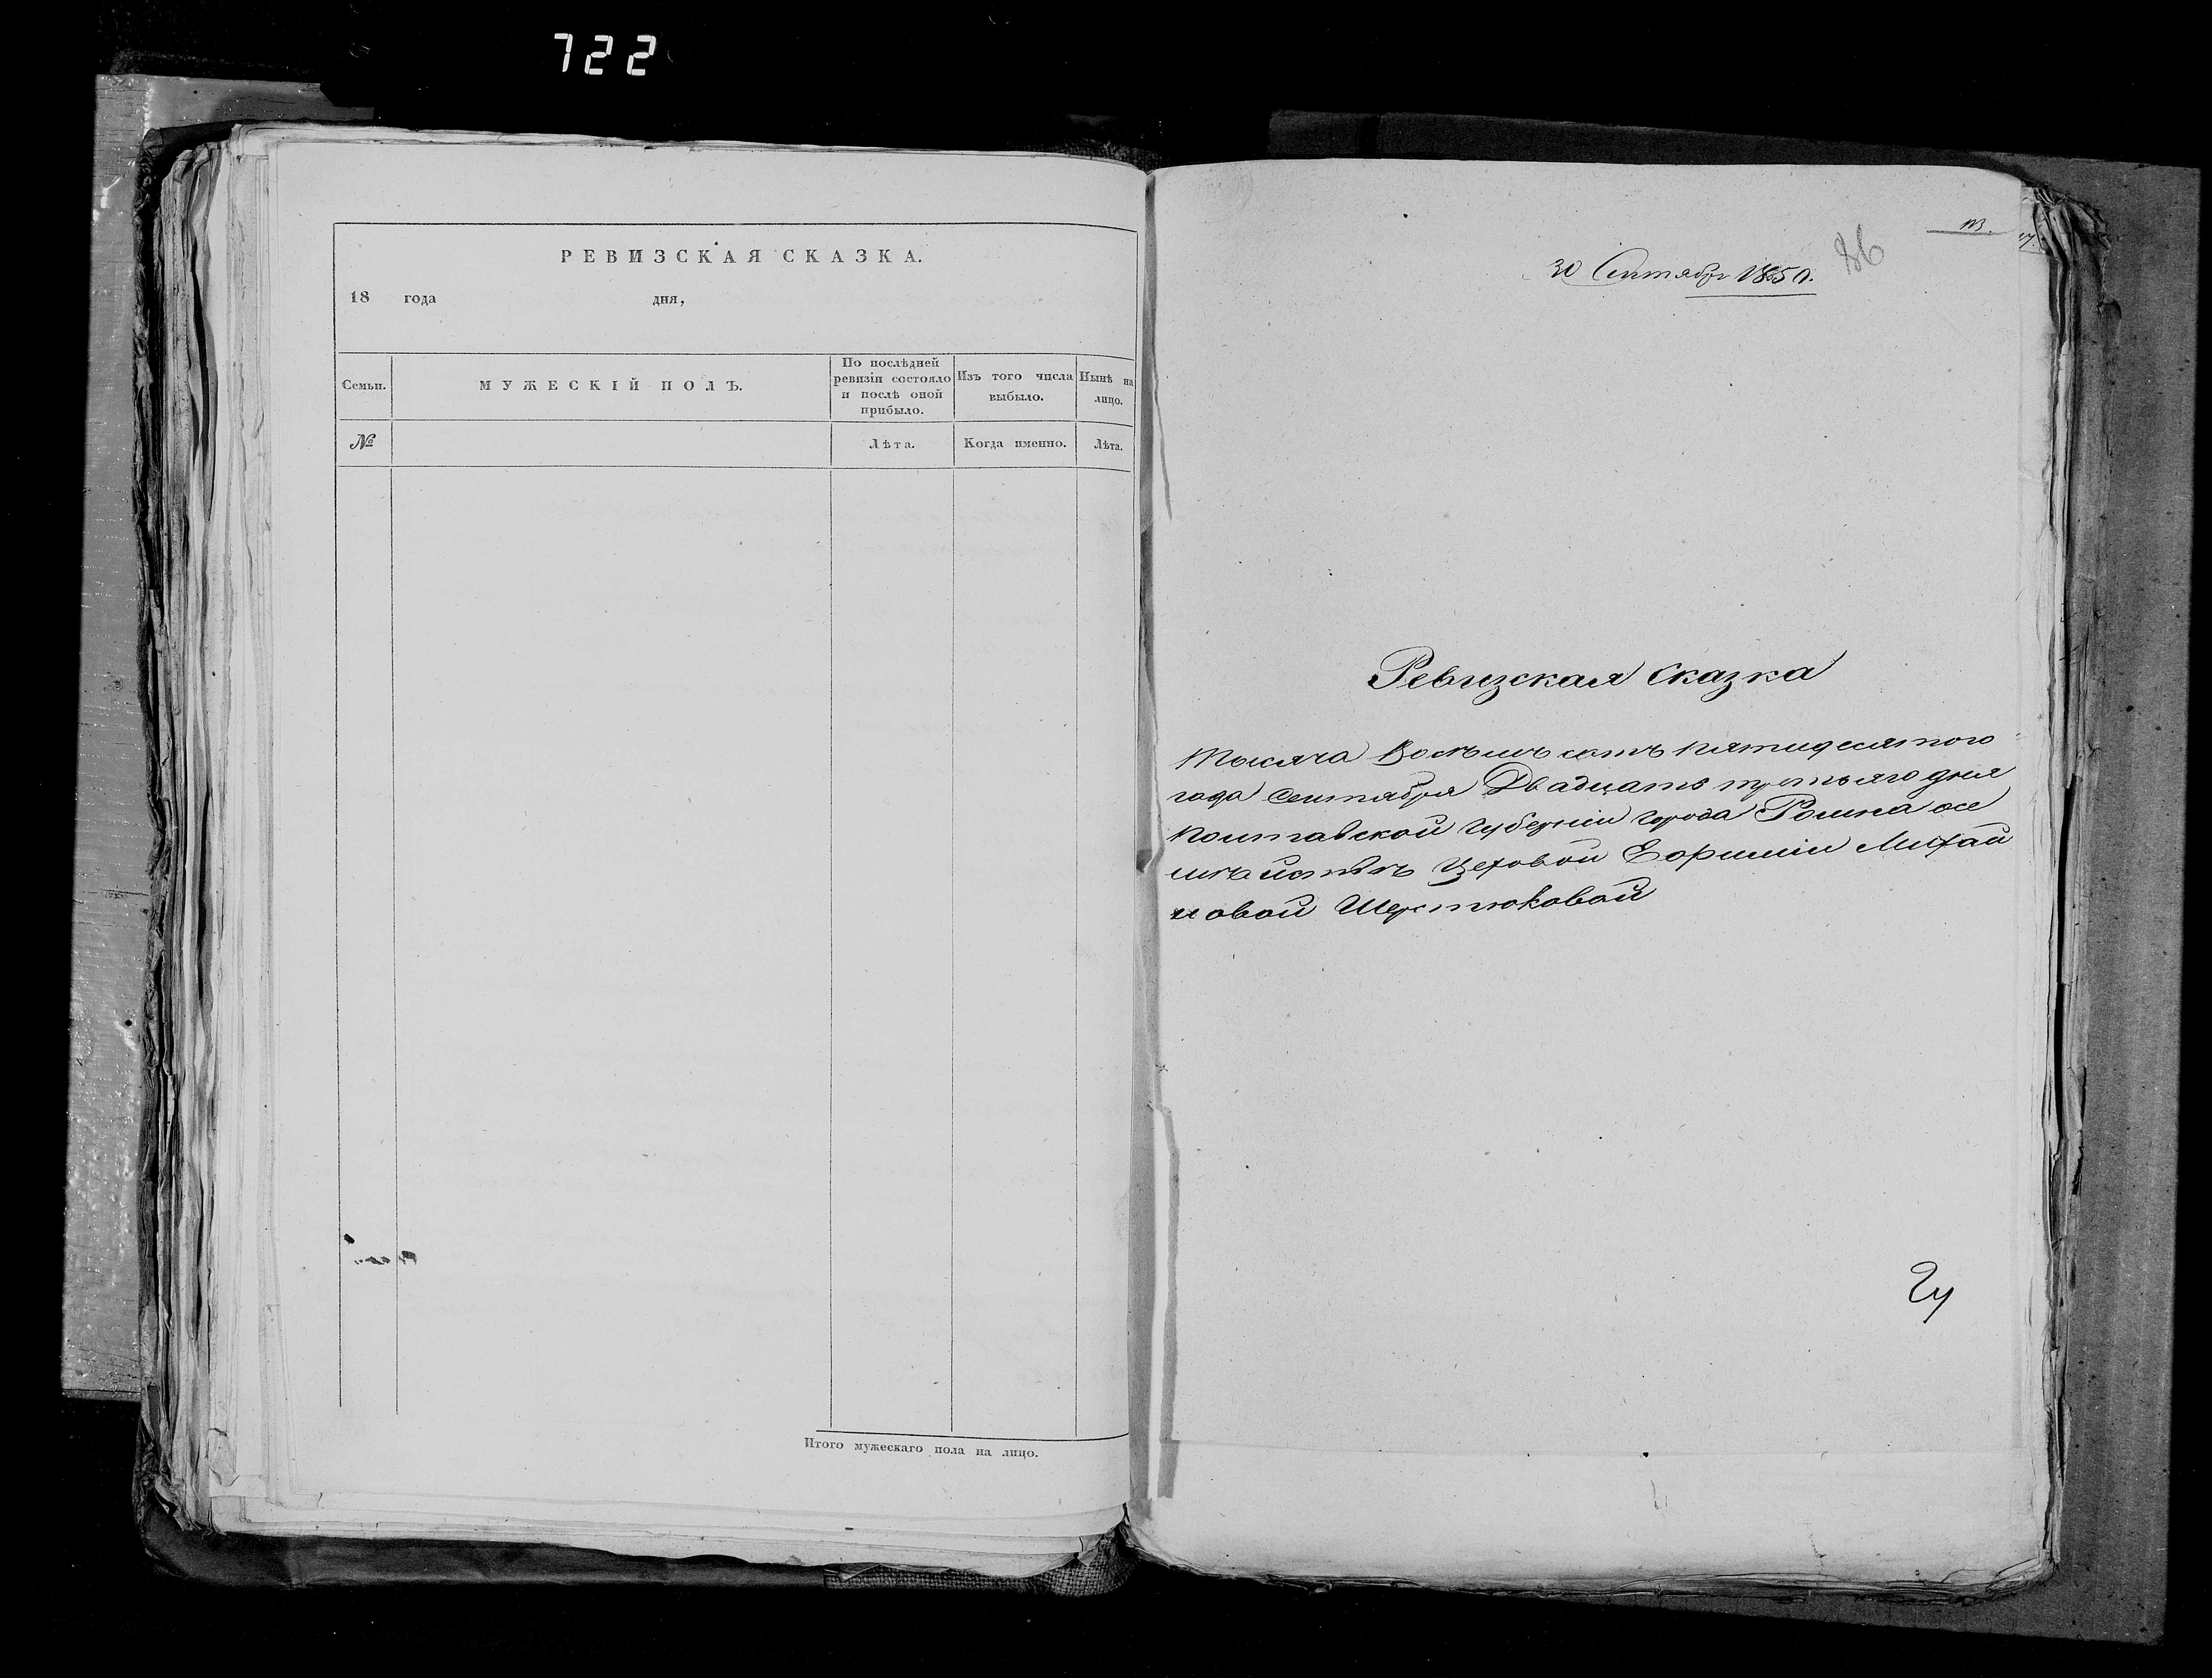 722
РЕВИЗСКАЯ СКАЗКА.
18 года дня,
Семьи.
МУЖЕСКІЙ ПОЛЪ.
По послѣдней ревизіи состояло и послѣ оной прибыло.
Изъ того числа выбыло.
Нынѣ на лицо.
№
Лѣта.
Когда именно.
Лѣта.
Итого мужескаго пола на лицо.
113.
86
30 Сентября 1850.
Ревизская Сказка
Тысяча Восѣмъ сотъ пятидесятого
года Сентября Двадцать третьяго дня
Полтавской Губерніи города Ромна
Цеховой Ефиміи Михай
ловой Шерстюковой